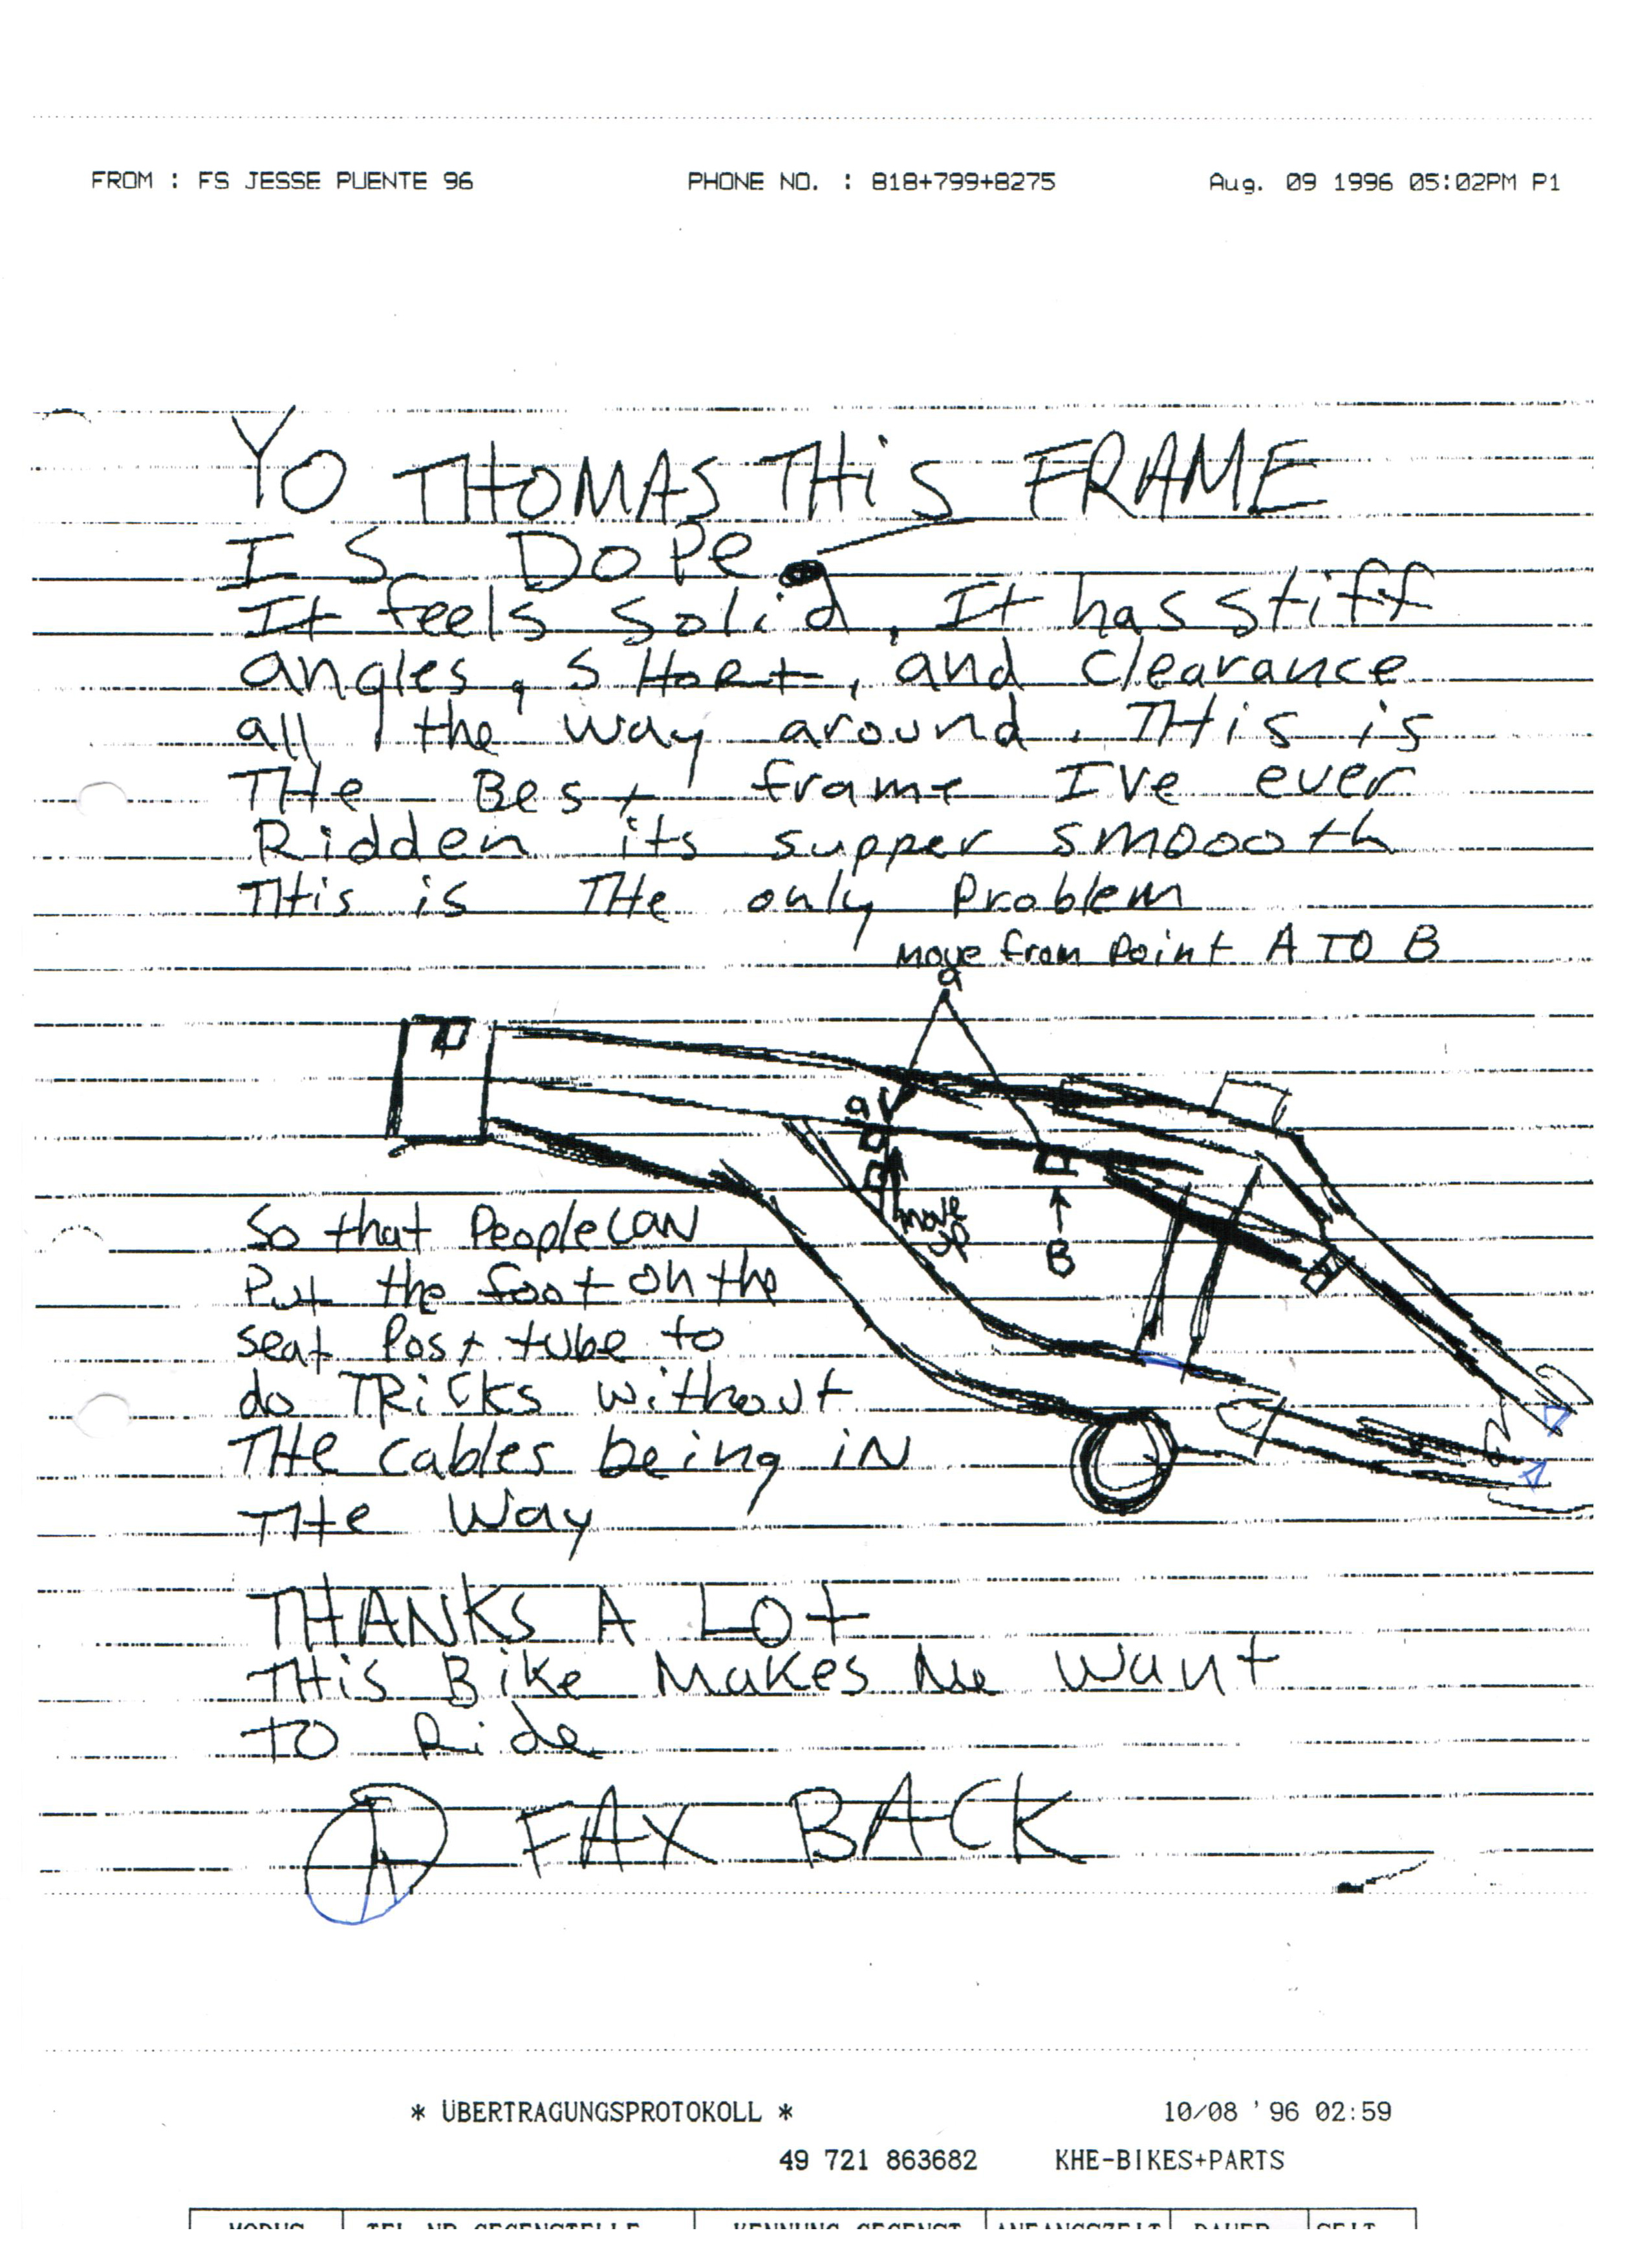 FROM : FS JESSE PUENTE 96 PHONE NO. : 818+799+8275 Aug. 09 1996 05:02PM P1
YO THOMAS THiS FRAME
IS DOPe
It feels solid, It has stiff
angles, sHoRt, and clearance
all the way around. THis is
THe Best frame I've ever
Ridden its supper smoooth
THis is THe only Problem
move from Point A TO B
a
a
move
up
B
So that People can
Put the foot on the
seat Post tube to
do TRiCKs without
THe cables being iN
THe Way
THANKS A LOt
THis Bike Makes Me Want
TO Ride
FAX BACK
* ÜBERTRAGUNGSPROTOKOLL * 10/08 '96 02:59
49 721 863682 KHE-BIKES+PARTS
MODUS TEL-NR GEGENSTELLE KENNUNG GEGENST ANFANGSZEIT DAUER SEIT